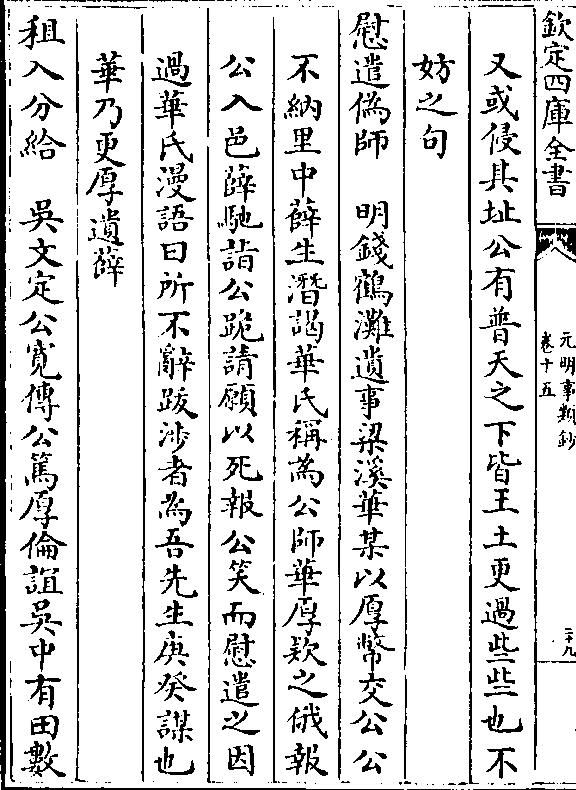 欽定四庫全書
元明事類鈔
卷十五
二十九
又或侵其址公有普天之下皆王土更過些些也不
妨之句
慰遣偽師　明錢鶴灘遺事梁溪華某以厚幣交公公
不納里中薛生潛謁華氏稱為公師華厚欵之俄報
公入邑薛馳詣公跪請願以死報公笑而慰遣之因
過華氏漫語曰所不辭跋涉者為吾先生庚癸謀也
華乃更厚遺薛
租入分給　吳文定公寛傳公篤厚倫誼吳中有田數